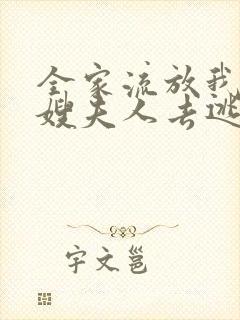 全家流放我
嫂夫人去逃
宇文邕